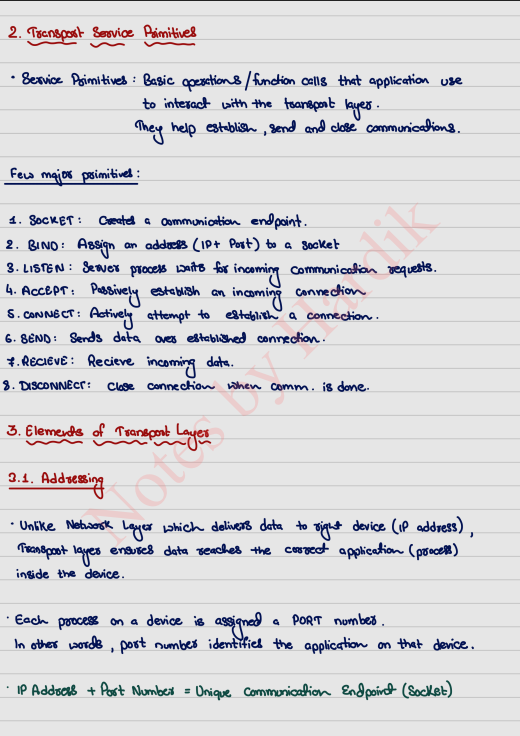 2. Transport Service Primitives
· Service Primitives : Basic operations/function calls that application use
to interact with the transport layer.
They help establish, send and close communications.
Few major primitives:
1. SOCKET: Creates a communication endpoint.
2. BIND: Assign an address (IP+ Port) to a socket
3. LISTEN: Server process waits for incoming communication requests.
4. ACCEPT: Passively establish an incoming connection
5. CONNECT: Actively attempt to establish a connection.
6. SEND: Sends data over established connection.
7. RECIEVE: Recieve incoming data.
8. DISCONNECT: Close connection when comm. is done.
3. Elements of Transport Layer
3.1. Addressing
· Unlike Network Layer which delivers data to right device (IP address),
Transport layer ensures data reaches the correct application (process)
inside the device.
· Each process on a device is assigned a PORT number.
In other words, port number identifies the application on that device.
· IP Address + Port Number = Unique Communication Endpoint (Socket)
Notes by Hardik